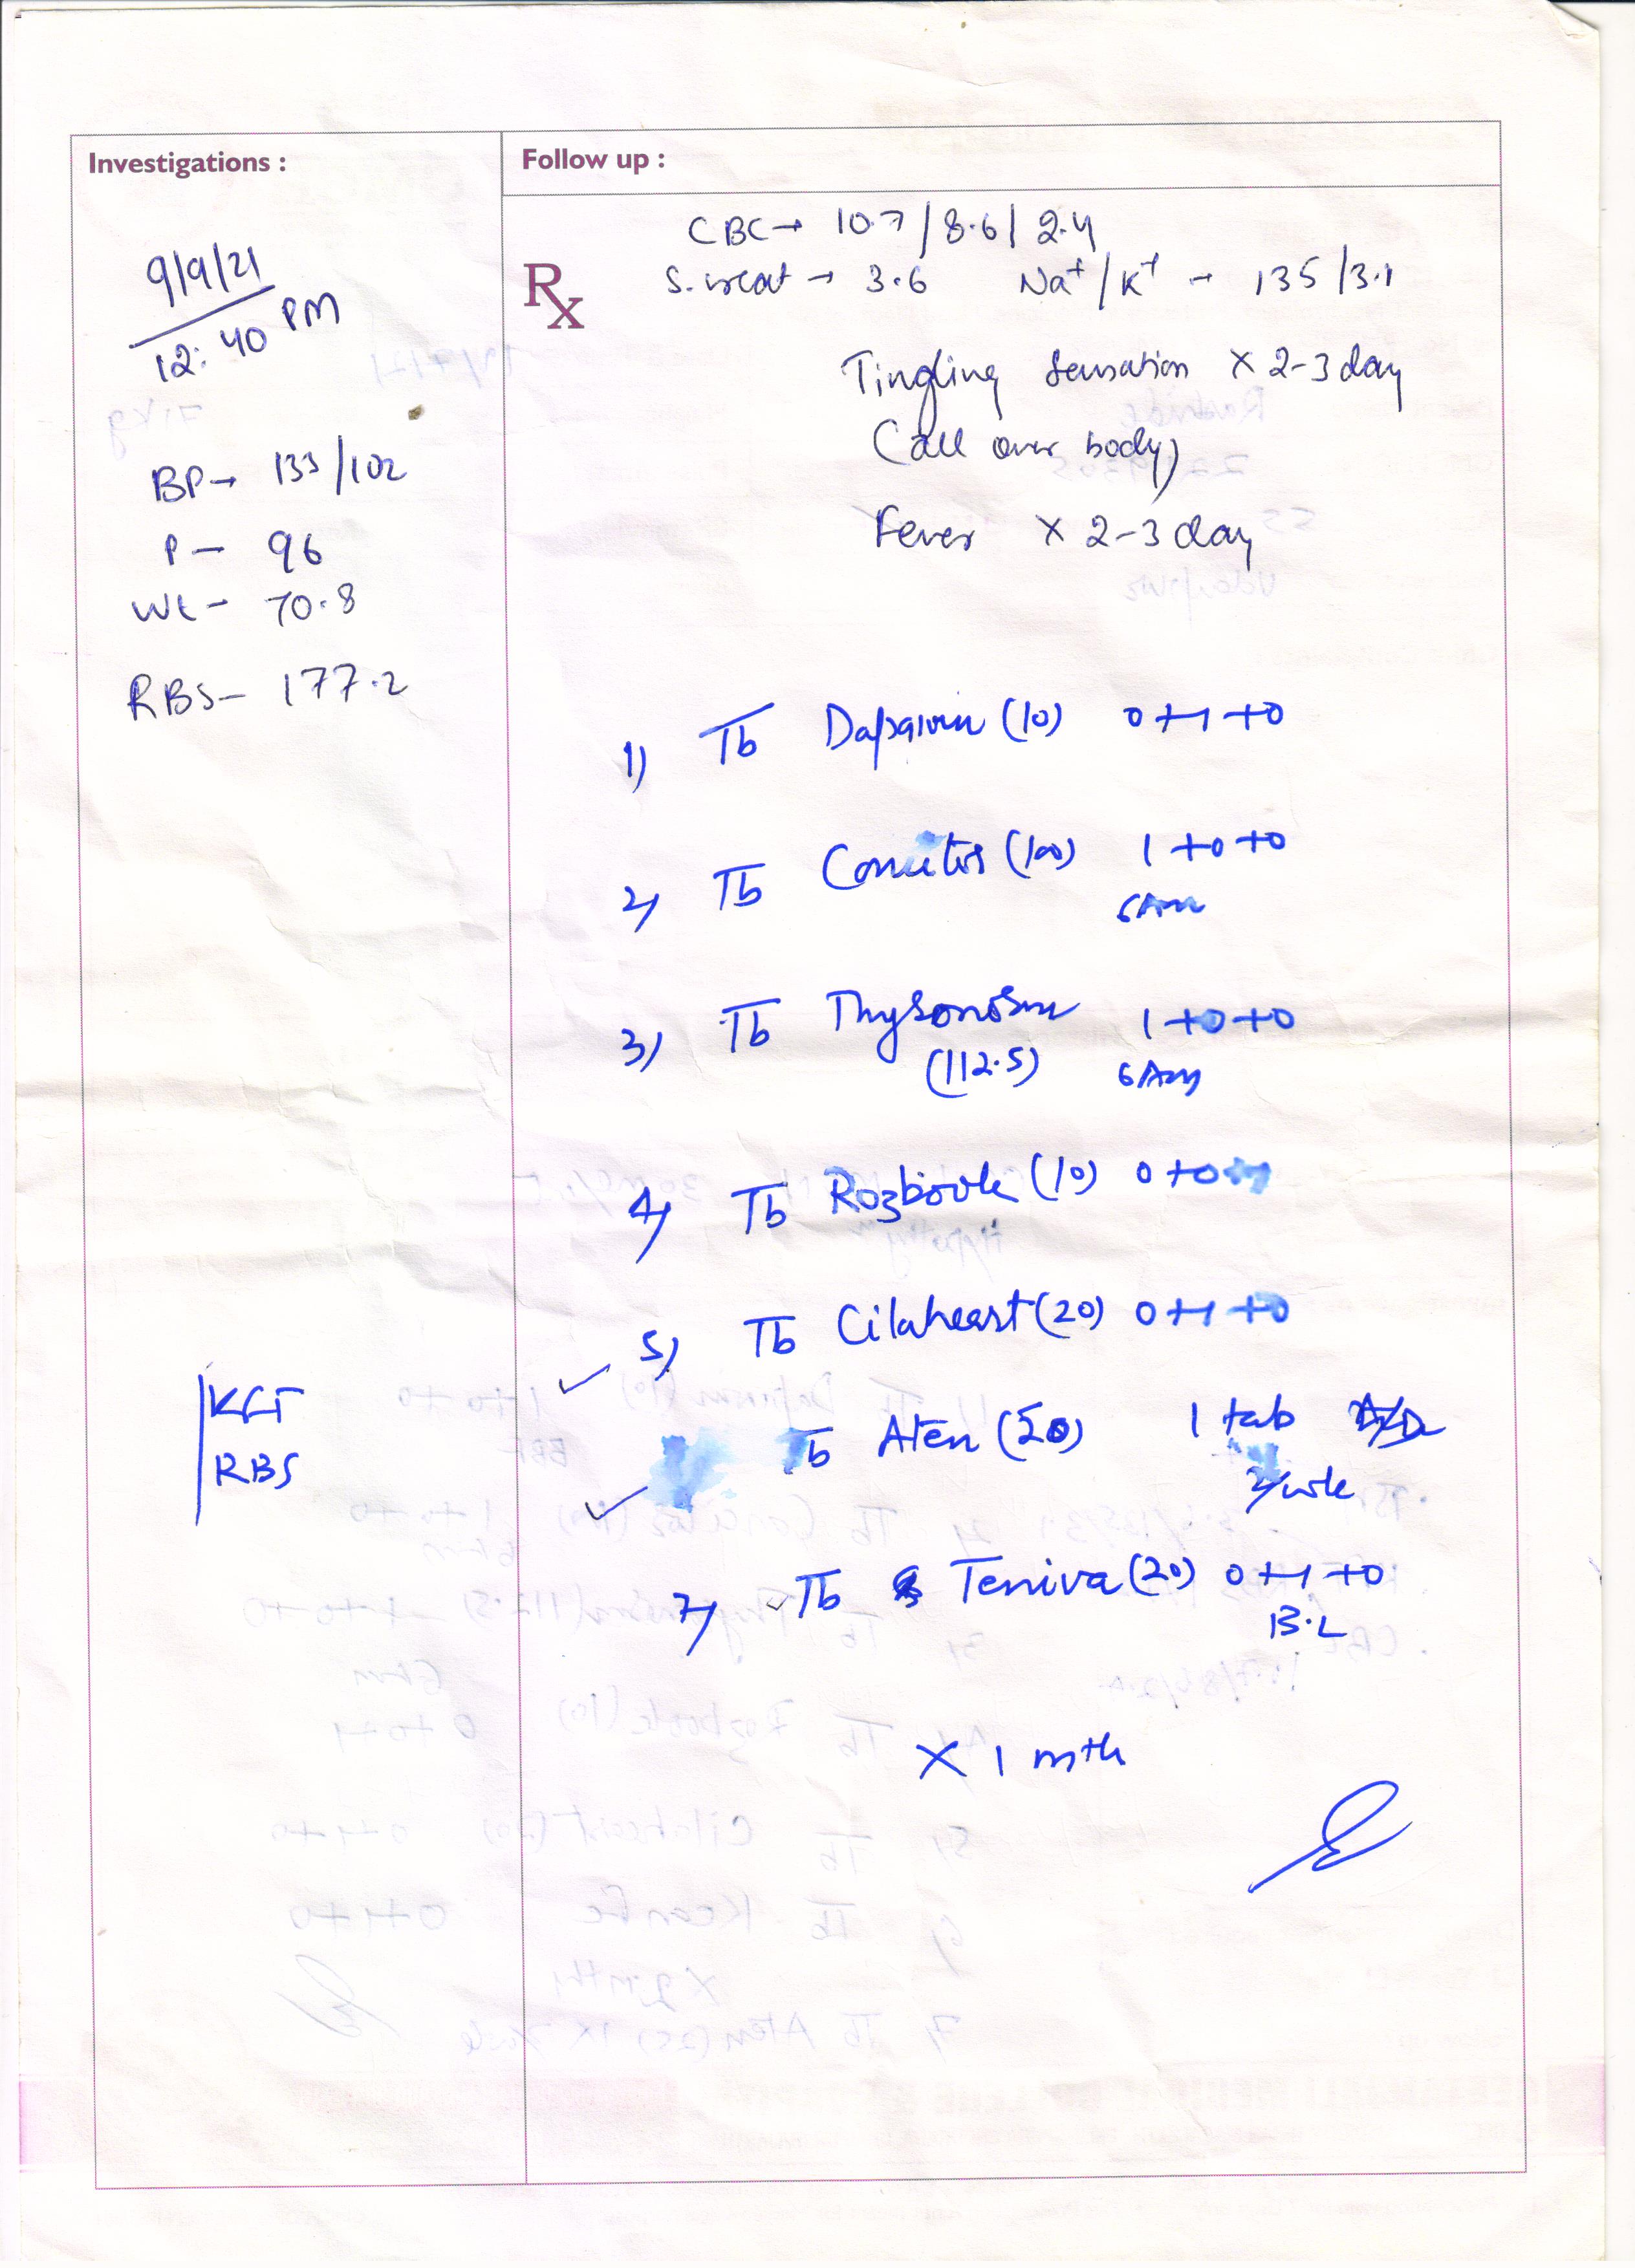 Investigations :
9/9/21
12:40 PM
BP → 133/102
P - 96
Wt - 70.8
RBS - 177.2
KFT
RBS
Follow up :
Rx
CBC → 10.7/8.6/2.4
S. creat → 3.6 Na+/K+ → 135/3.1
Tingling sensation X 2-3 day
(all over body)
Fever X 2-3 day
1) Tb (10) 0+1+0
2) Tb (100) 1+0+0
6 Am
3) Tb 1+0+0
(112.5) 6 Am
4) Tb (10) 0+0+1
5) Tb Cilaheart (20) 0+1+0
Tb Aten (50) 1 tab
/wk
7) Tb Teniva (20) 0+1+0
B.L
X 1 mth